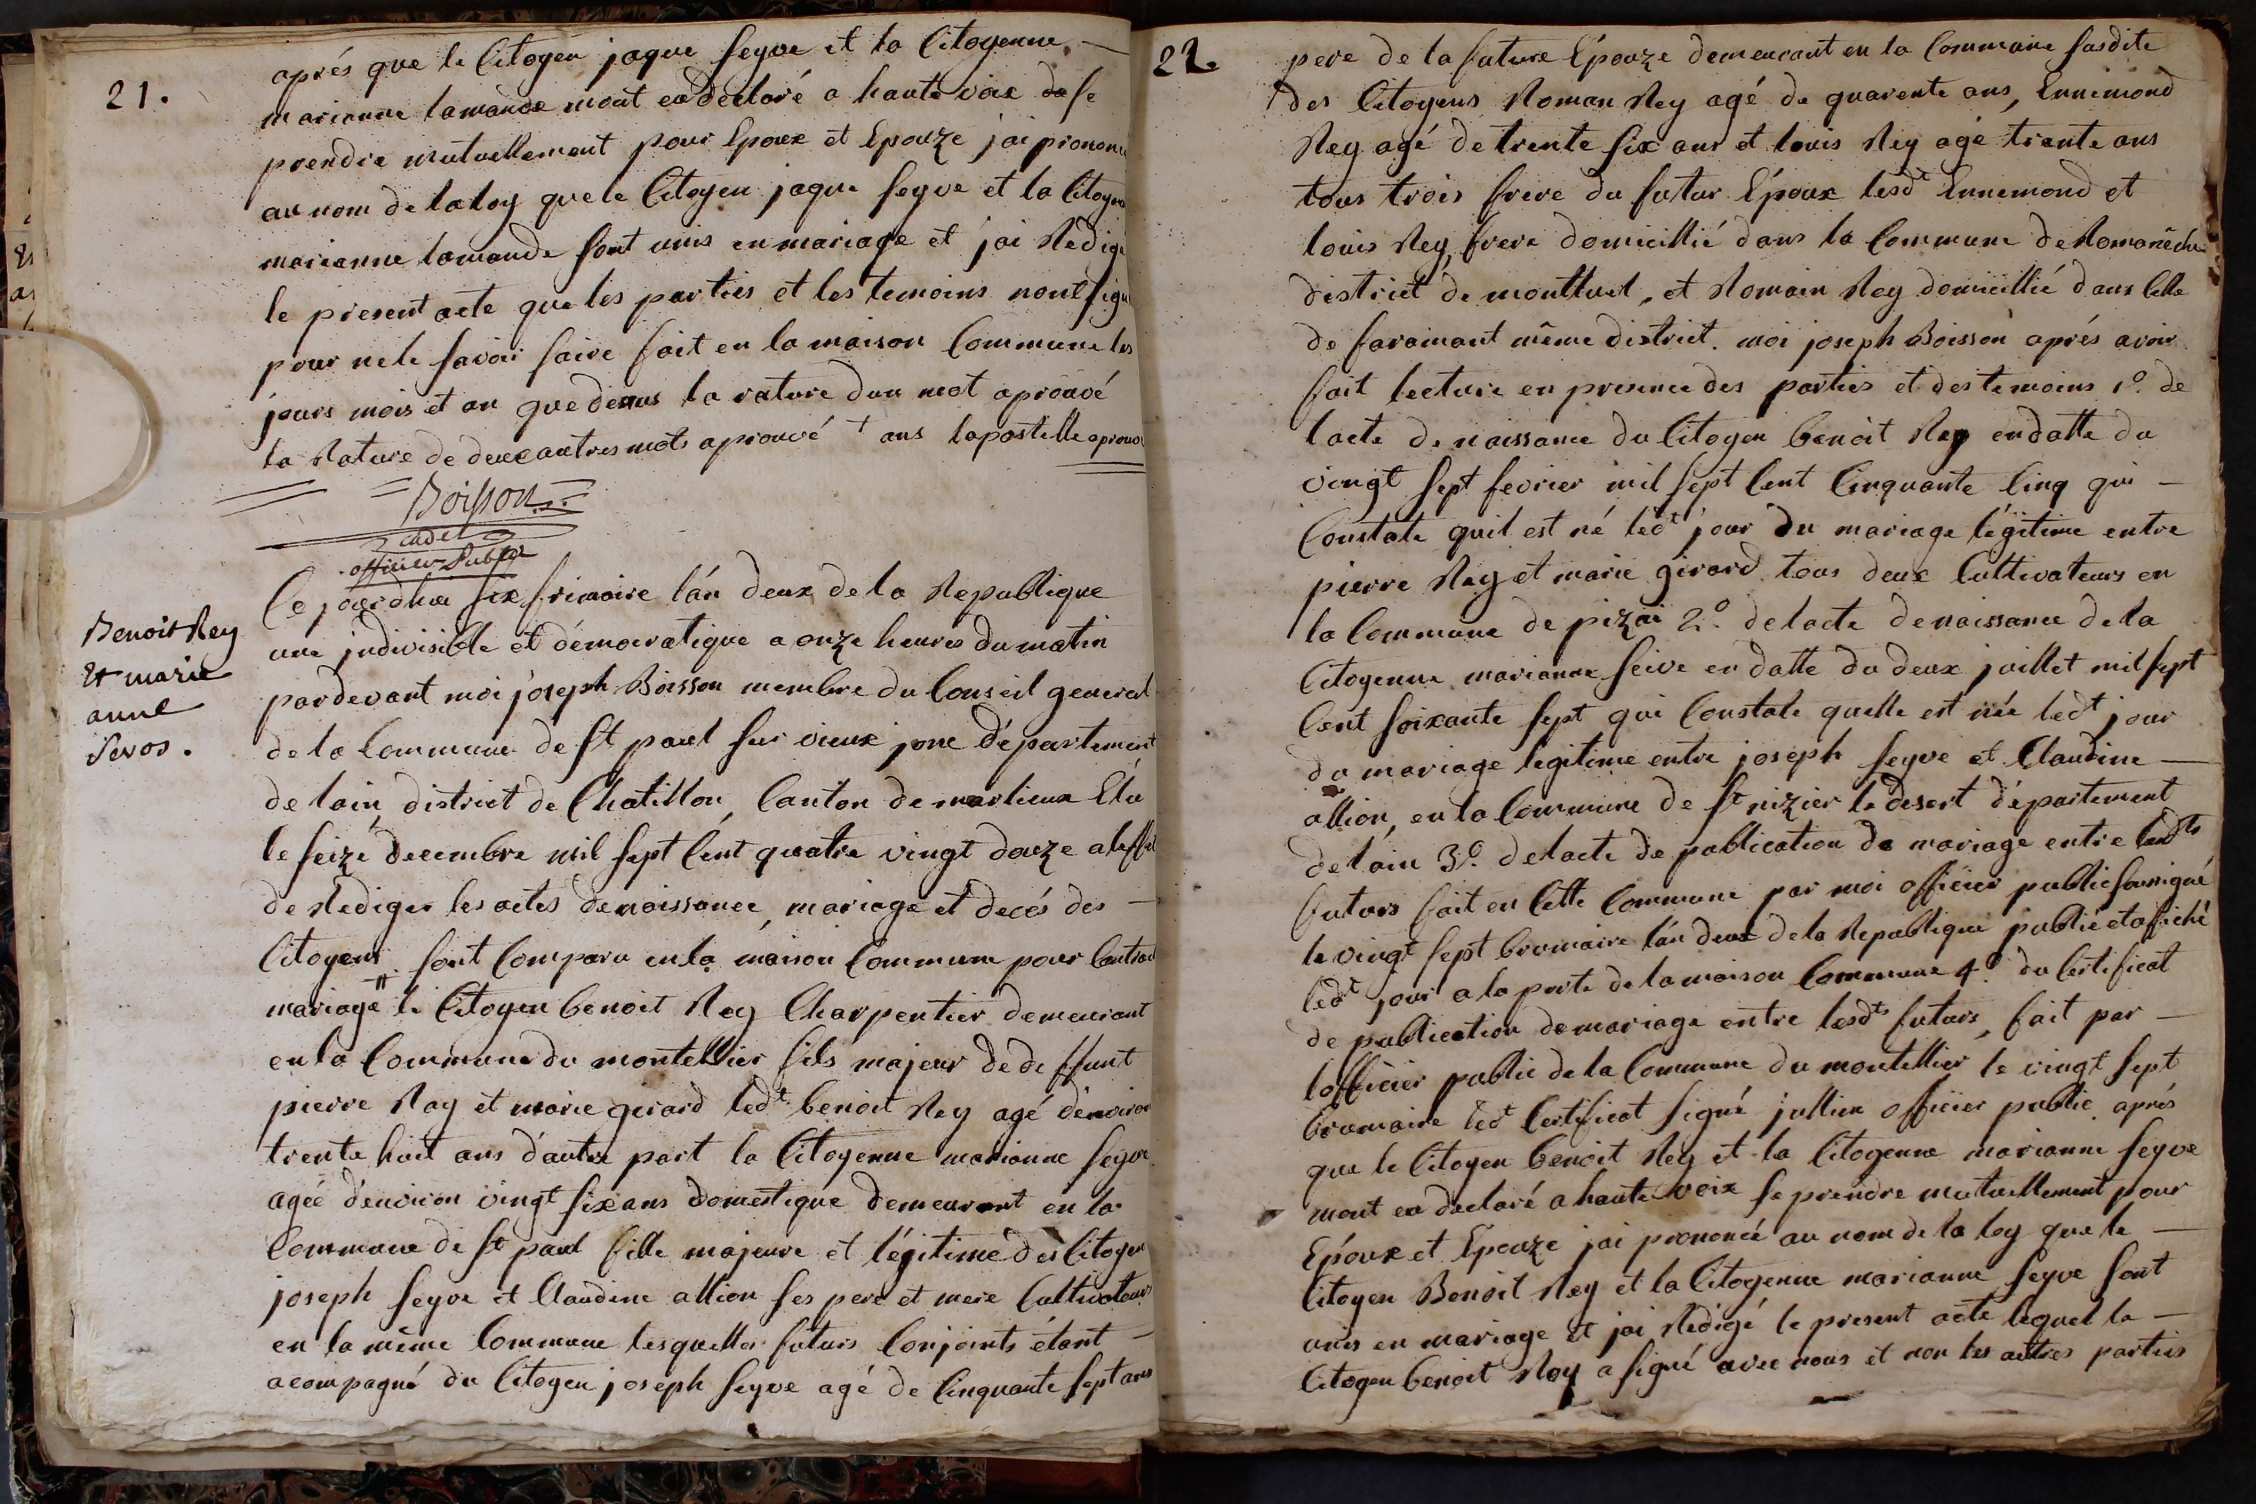 21.
aprés que le Citoyen jaque seyve et la Citoyenne
marianne lamande mont en declaré a haute voix de se
prendre mutuellement pour Epoux et Epouze jai prononc
au nom de la loy que le Citoyen jaque seyve et la Citoyen
marianne lamande sont unis en mariage et jai Redigé
le present acte que les parties et les temoins nont signé
pour ne le savoir faire fait en la maison Commune les
jours mois et an que dessus la rature dun mot aprouvé
la Rature de deux autres mots aprouvé + ans lapostille aprouv
Boisson
cadet
officier Public
Benoit Rey
Et marie
anne
Sevos.
Ce jourdhui six frimaire l'an deux de la Republique
une jndivisible et démocratique a onze heures du matin
pardevant moi joseph Boisson membre du Conseil general
de la Commune de St paul sur vieux jonc département
de lain, district de Chatillon, Canton de marlieux Elu
le seize decembre mil sept Cent quatre vingt douze a leffet
de Rediger les actes de naissance, mariage et decés des
Citoyens sont Comparu en la maison Commune pour Contract
mariage le Citoyen benoit Rey Charpentier demeurant
en la Commune du montellier fils majeur de deffunt
pierre Rey et marie girard led.t benoit Rey agé denviron
trente huit ans d'autre part la Citoyenne marianne seyve
agée d'environ vingt six ans domestique demeurant en la
Commune de St paul fille majeure et légitime des Citoyen
joseph seyve et Claudine allion ses pere et mere Cultivateurs
en la même Commune lesquelles futurs Conjoints étant
acompagné du Citoyen joseph seyve agé de Cinquante sept ans
22.
pere de la future Epouze demeurant en la Commune susdite
des Citoyens Roman Rey agé de quarente ans, Ennemond
Rey agé de trente six ans et louis Rey agé trente ans
tous trois frere du futur Epoux lesd.t Ennemond et
louis Rey, frere domicillié dans la Commune de Romanêche
district de montluel, et Romain Rey domicillié dans Celle
de faramant même district. moi joseph Boisson aprés avoir
fait lecture en presence des parties et des temoins 1.o de
lacte de naissance du Citoyen benoit Rey en datte du
vingt sept fevrier mil sept Cent Cinquante Cinq qui
Constate quil est né led.t jour du mariage légitime entre
pierre Rey et marie girard tous deux Cultivateurs en
la Commune de pizai 2.o de lacte de naissance de la
Citoyenne marianne seive en datte du deux juillet mil sept
Cent soixante sept qui Constate quelle est née led.t jour
du mariage legitime entre joseph seyve et Claudine
allion, en la Commune de St nizier le desert département
de lain 3.o de lacte de publication de mariage entre lesdts
futurs fait en Cette Commune par moi officier public soussigné
le vingt sept brumaire l'an deux de la Republique publié et afiché
led.t jour a la porte de la maison Commune 4.o du Certificat
de publication de mariage entre lesdts futurs, fait par
lofficier public de la Commune du montellier le vingt sept
brumaire led.t Certificat signé jullien officier public aprés
que le Citoyen benoit Rey et la Citoyenne marianne seyve
mont en declaré a haute voix se prendre mutuellement pour
Epoux et Epouze jai prononcé au nom de la loy que le
Citoyen Benoit Rey et la Citoyenne marianne seyve sont
unis en mariage et jai Redigé le present acte lequel la
Citoyen benoit Rey a signé avec nous et non les autres parties